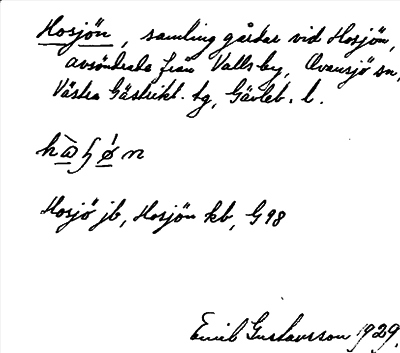 Hosjön, samling gårdar vid Hosjön,
avsöndrade från Vallsby, Ovansjö sn,
Västra Gästrikl. tg, Gävleb. l.
Hosjö jb, Hosjön kb, G 98
Emil Gustavsson 1929.